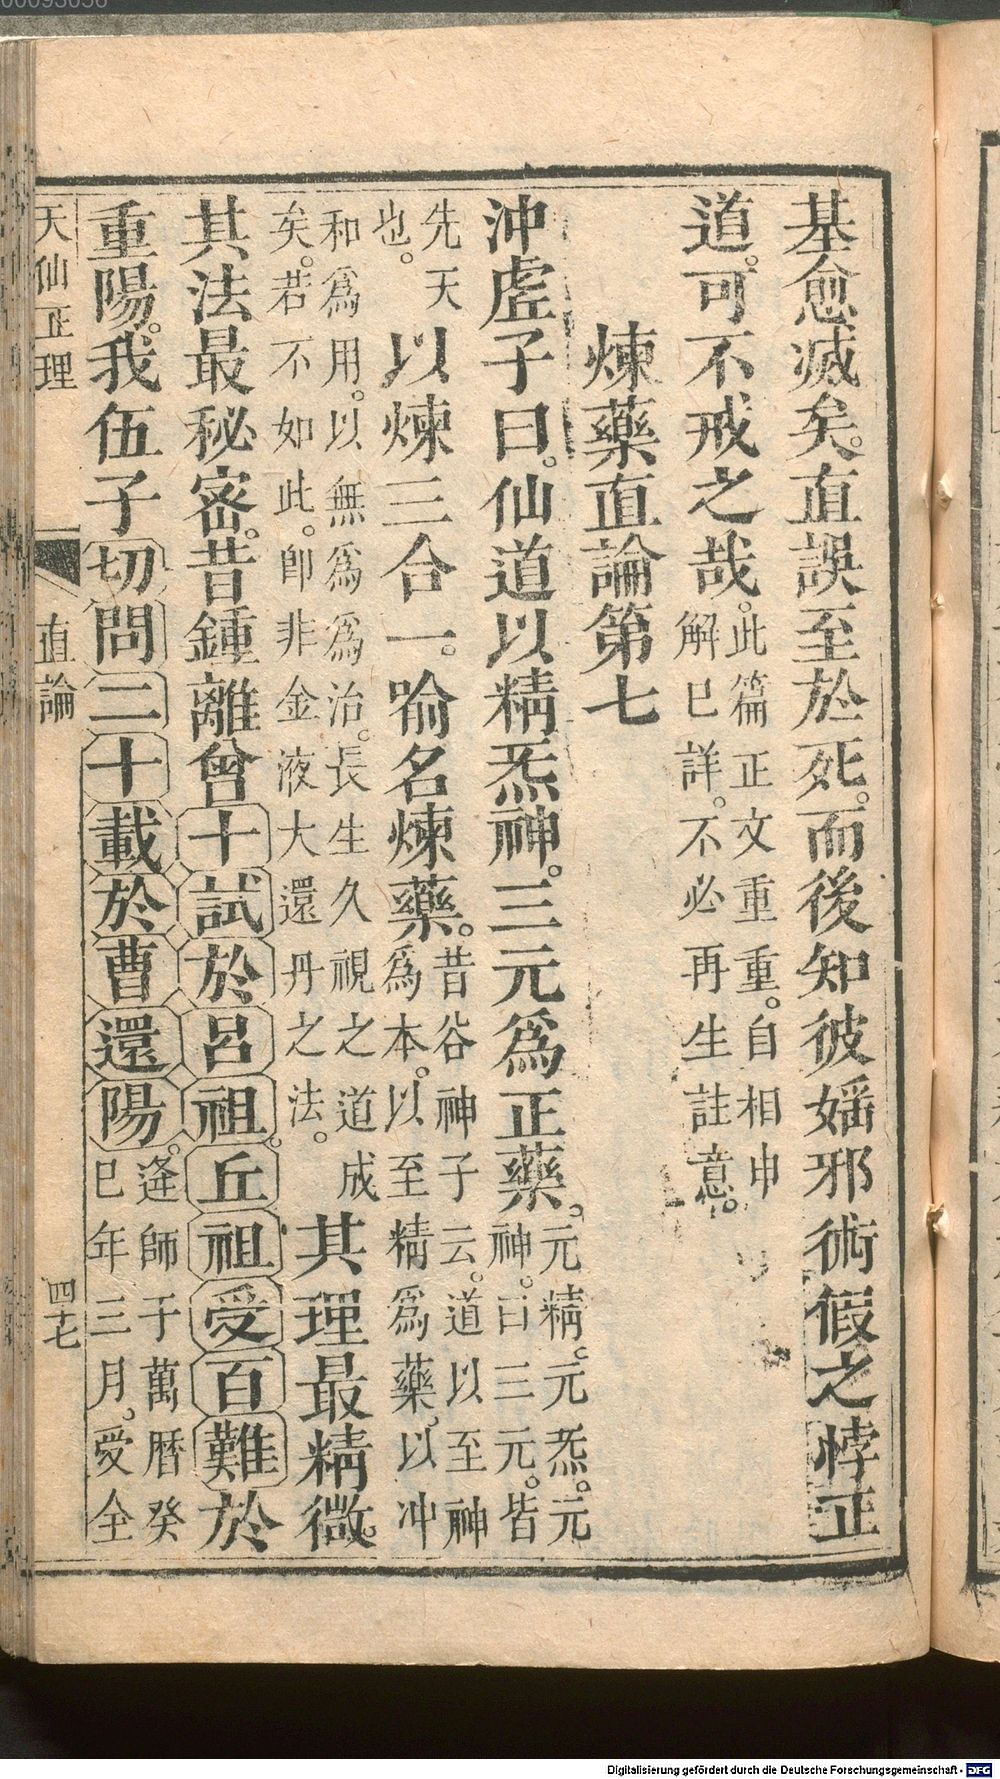 00093056
基愈滅矣。直誤至於死。而後知彼婬邪術假之悖正
道。可不戒之哉。此篇正文重重。自相申
解已詳。不必再生註意。
煉藥直論第七
沖虛子曰。仙道以精炁神。三元為正藥。元精。元炁。元
神。曰三元。皆
先天
也。
以煉三合一。喻名煉藥。昔谷神子云。道以至神
為本。以至精為藥。以冲
和為用。以無為為治。長生久視之道成
矣。若不如此。卽非金液大還丹之法。
其理最精微。
其法最秘密。昔鍾離曾十試於呂祖。丘祖受百難於
重陽。我伍子切問二十載於曹還陽。逢師于萬曆癸
巳年三月。受全
天仙正理
直論
四十七
Digitalisierung gefördert durch die Deutsche Forschungsgemeinschaft - DFG